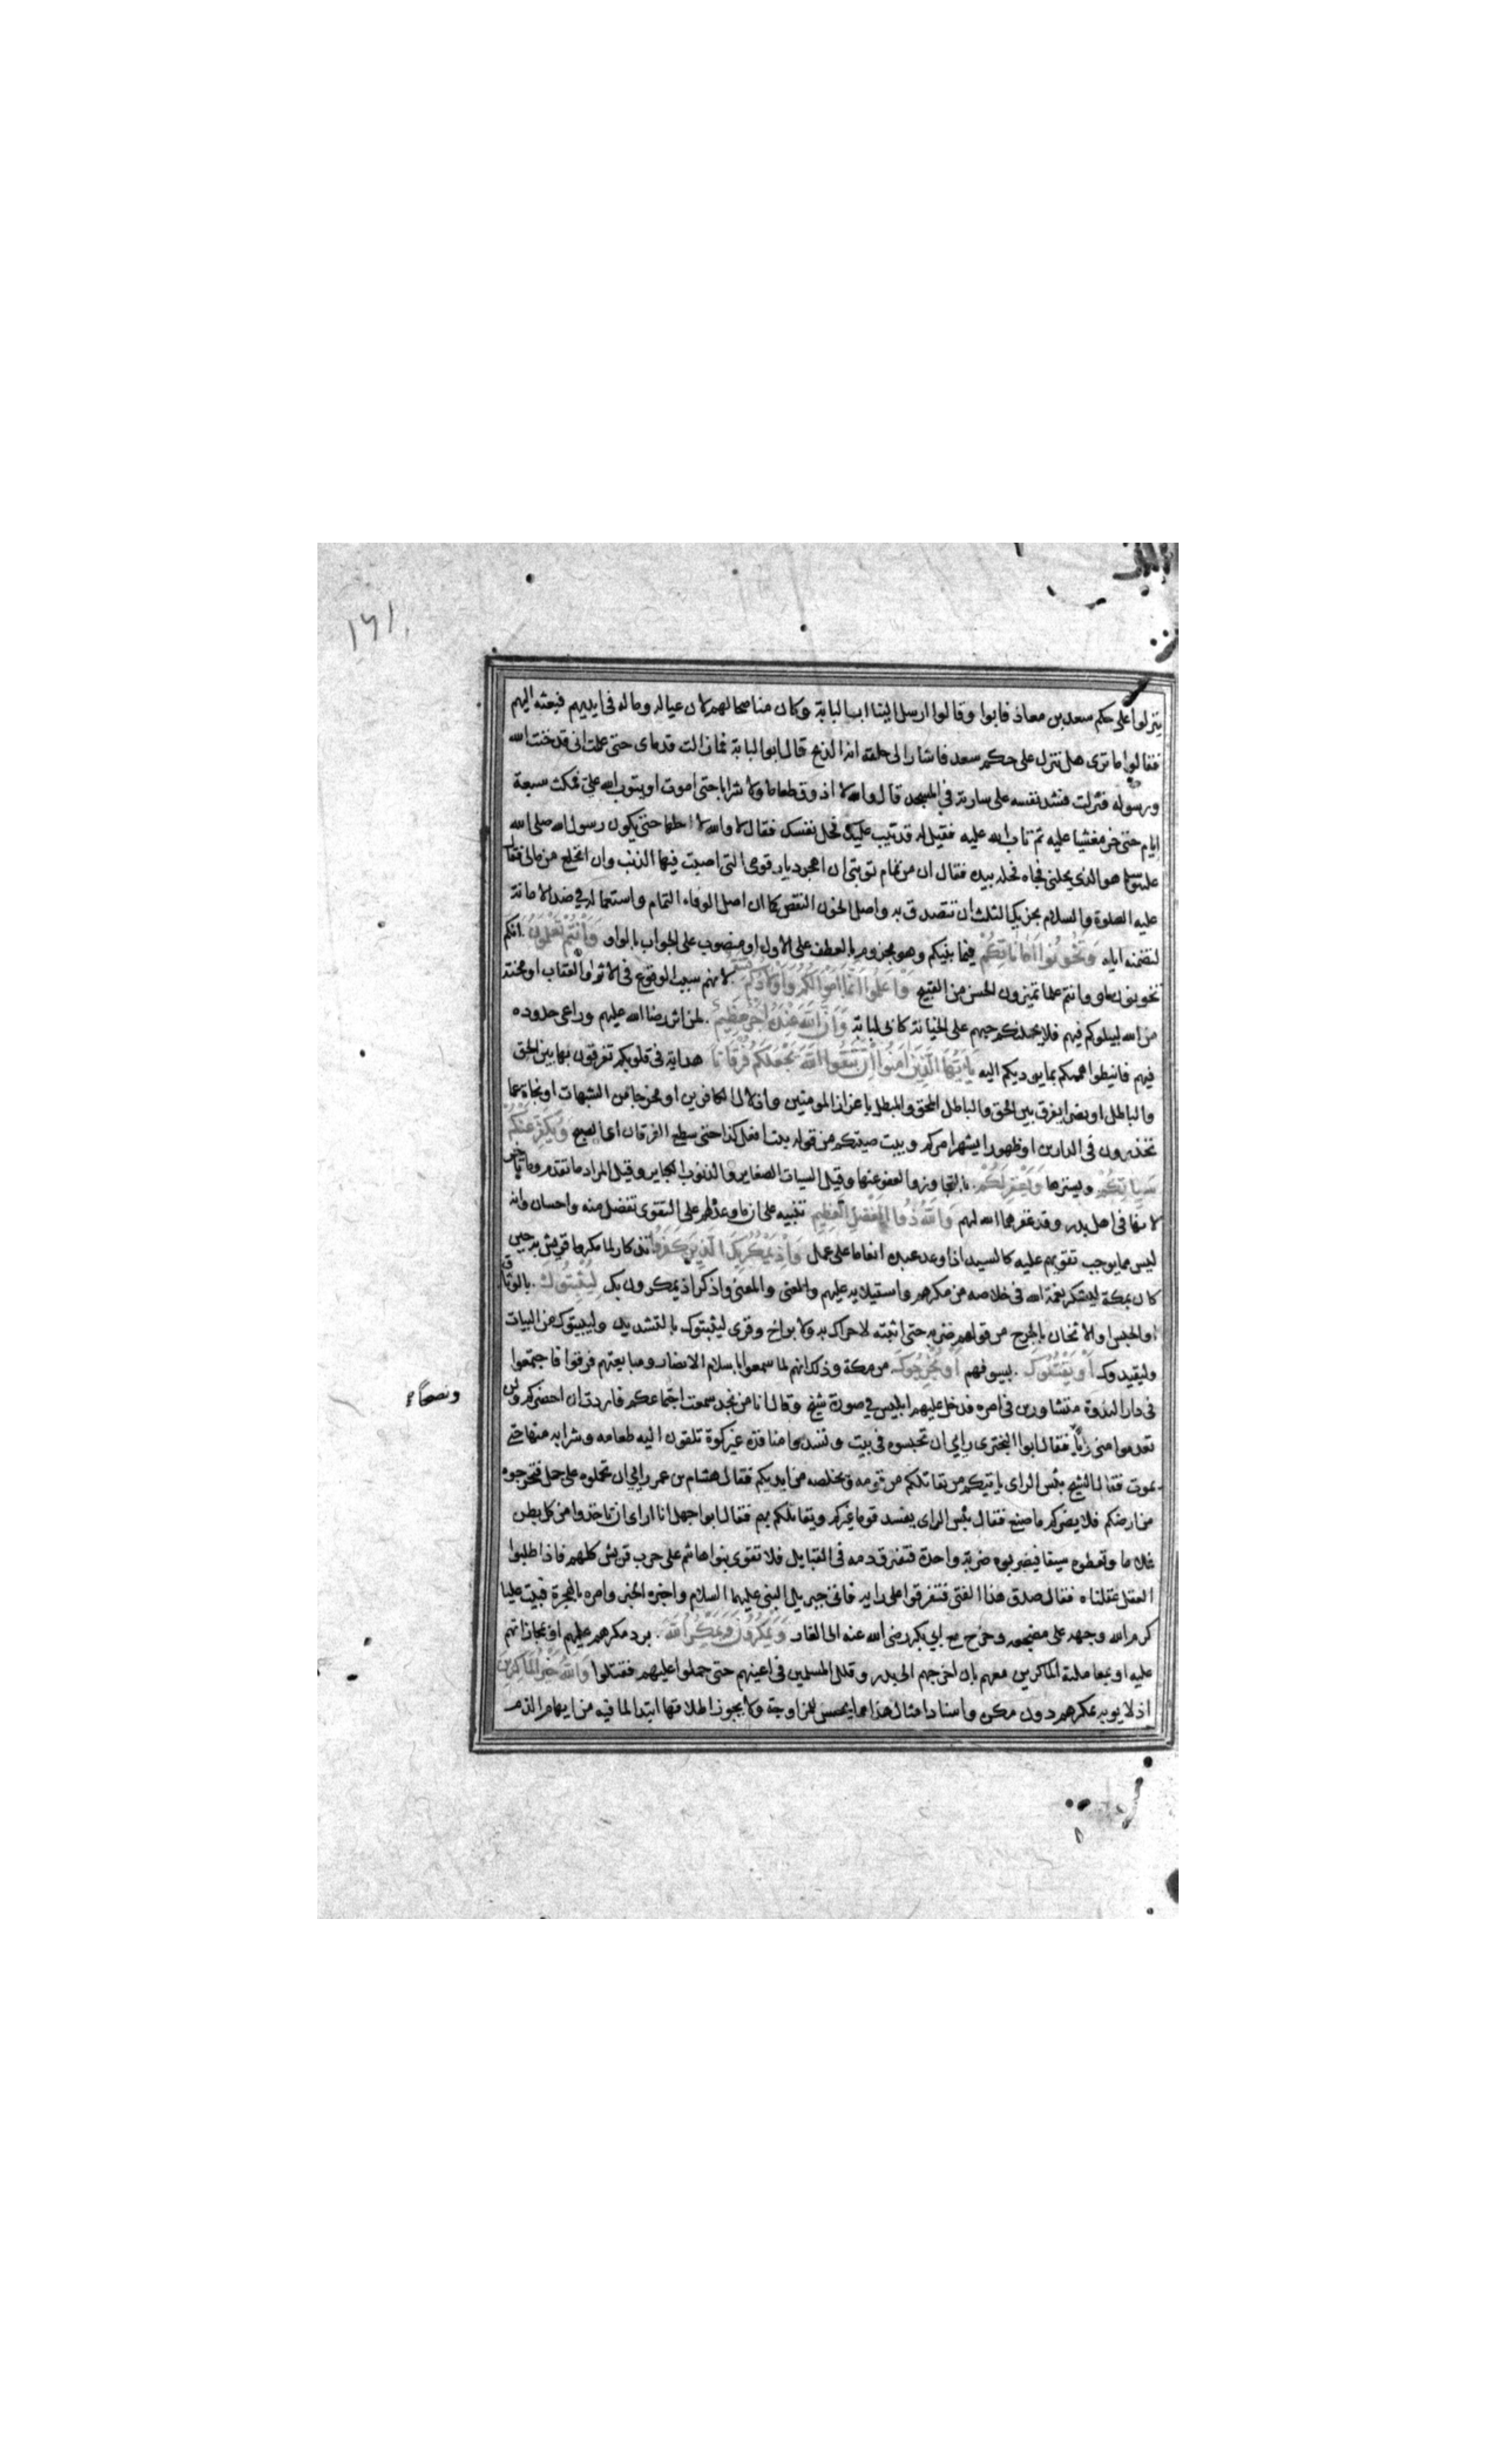 ١٦١
ينزلوا على حكم سعد بن معاذ فابوا وقالوا ارسل الينا ابا لبابة وكان مناصحا لهم لان عياله وماله فى ايديهم فبعثه اليهم
فقالوا ما ترى هل ننزل على حكم سعد فاشار الى حلقه انه الذبح قال ابو لبابة فما زالت قدماى حتى علمت انى قد خنت الله
ورسوله فنزلت فشد نفسه على سارية فى المسجد قال والله لا اذوق طعاما ولا شرابا حتى اموت او يتوب الله على فمكث سبعة
ايام حتى خر مغشيا عليه ثم تاب الله عليه فقيل له قد تيب عليك فحل نفسك فقال لا والله لا احلها حتى يكون رسول الله صلى الله
عليه وسلم هو الذى يحلنى فجاه فحله بيده فقال ان من تمام توبتى ان اهجر ديار قومى التى اصبت فيها الذنب وان انخلع من مالى فقال
عليه الصلوة والسلام يجزيك الثلث ان تتصدق به واصل الخون النقص كما ان اصل الوفاء التمام واستعماله فى ضد الامانة
لتضمنه اياه وَتَخُونُوا اَمَانَاتِكُمْ فيما بينكم وهو مجزوم بالعطف على الاول او منصوب على الجواب بالواو وَاَنْتُمْ تَعْلَمُونَ انكم
تخونون او وانتم علما تميزون الحسن من القبيح وَاعْلَمُوا اَنَّمَا اَمْوَالُكُمْ وَاَوْلَادُكُمْ فتنة لانهم سبب الوقوع فى الاثم والعقاب او محنة
من الله ليبلوكم فيهم فلا يحملنكم حبهم على الخيانة كابى لبابة وَاَنَّ اللّٰهَ عِنْدَهُ اَجْرٌ عَظِيمٌ لمن اثر رضا الله عليهم وراعى حدوده
فيهم فانيطوا هممكم بما يوديكم اليه يَا اَيُّهَا الَّذِينَ اٰمَنُوا اِنْ تَتَّقُوا اللّٰهَ يَجْعَلْ لَكُمْ فُرْقَانًا هداية فى قلوبكم تفرقون بها بين الحق
والباطل او نصرا يفرق بين الحق والباطل المحق والمبطل باعزاز المومنين واذلال الكافرين او مخرجا من الشبهات او نجاة عما
تحذرون فى الدارين او ظهورا يشهر امركم ويبث صيتكم من قوله بت افعل كذا حتى سطع الفرقان اى الصبح وَيُكَفِّرْ عَنْكُمْ
سَيِّاٰتِكُمْ ويسترها وَيَغْفِرْ لَكُمْ بالتجاوز والعفو عنها وقيل السيات الصغاير والذنوب الكباير وقيل المراد ما تقدم وما تاخر
لانها فى اهل بدر وقد غفرهما الله لهم وَاللّٰهُ ذُو الْفَضْلِ الْعَظِيمِ تنبيه على ان ما وعده لهم على التقوى تفضل منه واحسان وانه
ليس مما يوجب تقويهم عليه كالسيد اذا وعد عبده انعاما على عمل وَاِذْ يَمْكُرُ بِكَ الَّذِينَ كَفَرُوا تذكار لما مكر به قريش به حين
كان بمكة ليشكر نعمة الله فى خلاصه من مكرهم واستيلايه عليهم والمعنى والمعنى واذكر اذ يمكرون بك لِيُثْبِتُوكَ بالوثاق
او الحبس او الاثخان بالجرح من قولهم ضربه حتى اثبته لا حراك به ولا براح وقرى ليثبتوك بالتشديد وليبيتوك من البيات
وليقيدوك اَوْ يَقْتُلُوكَ بسيوفهم اَوْ يُخْرِجُوكَ من مكة وذلك انهم لما سمعوا باسلام الانصار ومبايعتهم فرقوا فاجتمعوا
فى دار الندوة متشاورين فى امره فدخل عليهم ابليس فى صورة شيخ وقال انا من نجد سمعت اجتماعكم فاردت ان احضركم ولن
ونصحا
تعدموا منى رايا فقال ابو البخترى رايى ان تحبسوه فى بيت وتسدوا منافذه غير كوة تلقون اليه طعامه وشرابه منها حتى
يموت فقال الشيخ بئس الراى ياتيكم من يقاتلكم من قومه ويخلصه من ايديكم فقال هشام بن عمر رايى ان تحملوه على جمل فتخرجوه
من ارضكم فلا يضركم ما صنع فقال بئس الراى يفسد قوما غيركم ويقاتلكم بهم فقال ابو جهل انا ارى ان تاخذوا من كل بطن
غلاما وتعطوه سيفا فيضربوه ضربة واحدة فتفرق دمه فى القبايل فلا تقوى بنوا هاشم على حرب قريش كلهم فاذا طلبوا
العقل عقلناه فقال صدق هذا الفتى فتفرقوا على رايه فاتى جبريل النبى عليهما السلام واخبره الخبر وامره بالهجرة فبيت عليا
كرم الله وجهه على مضجعه وخرج مع ابى بكر رضى الله عنه الى الغار وَيَمْكُرُونَ وَيَمْكُرُ اللّٰهُ برد مكرهم عليهم او بمجازاتهم
عليه او بمعاملة الماكرين معهم بان اخرجهم الى بدر وقلل المسلمين فى اعينهم حتى حملوا عليهم فقتلوا وَاللّٰهُ خَيْرُ الْمَاكِرِينَ
اذ لا يوبه بمكرهم دون مكره واسناد امثال هذا مما يحسن للمزاوجة ولا يجوز اطلاقها ابتدا لما فيه من ايهام الذم